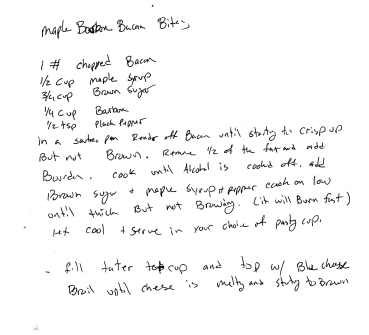 Maple Bourbon Bacon Bites
1 # chopped Bacon
1/2 Cup maple syrup
3/4 cup Brown Sugar
1/4 Cup Bourbon
1/2 tsp Black Pepper
in a sautee pan Render off Bacon until starting to crisp up
But not Brown. Remove 1/2 of the fat and add
Bourbon. cook until Alcohol is cooked off. add
Brown sugar + maple syrup + pepper cook on low
until thick But not Browning. (it will Burn fast)
Let cool + serve in your choice of pastry cup.
- fill tater cup and top w/ Blue cheese
Broil until cheese is melty and starting to Brown